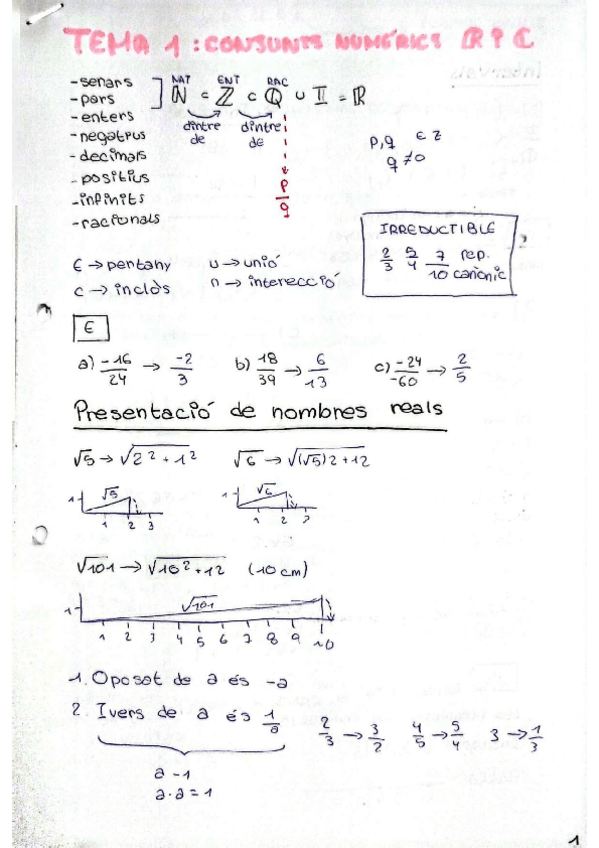 TEMA 1: CONJUNTS NUMÈRICS R I C
- senars
- pars
- enters
- negatius
- decimals
- positius
- infinits
- racionals
NAT ENT RAC
ℕ ⊂ ℤ ⊂ ℚ ∪ 𝕀 = ℝ
dintre de dintre de
p/q
p,q ∈ Z
q ≠ 0
IRREDUCTIBLE
2/3 5/4 7/10 rep. canònic
∈ → pentany u → unió
c → inclòs n → interecció
E
a) -16/24 → -2/3 b) 18/39 → 6/13 c) -24/-60 → 2/5
Presentació de nombres reals
√5 → √2² + 1² √6 → √(√5)2 + 12
1 √5 1 2 3
1 √6 1 2 3
√101 → √10² + 12 (10 cm)
1 √101
1 2 3 4 5 6 7 8 9 10
1. Oposat de a és -a
2. Ivers de a és 1/a
2/3 → 3/2 4/5 → 5/4 3 → 1/3
a -1
a·a = 1
1